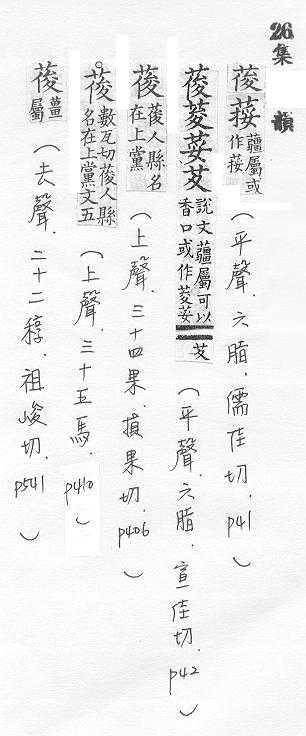 26集韻
葰荽薑屬或作荾(平聲.六脂.儒佳切.p41)
葰荾荽芆說文薑屬可以香口或作荾荽芆(平聲.六脂.宣佳切.p42)
葰葰人縣名在上黨(上聲.三十四果.損果切.p406)
葰數瓦切葰人縣名在上黨文五(上聲.三十五馬.p410)
葰薑屬(去聲.二十二稕.祖峻切.p541)